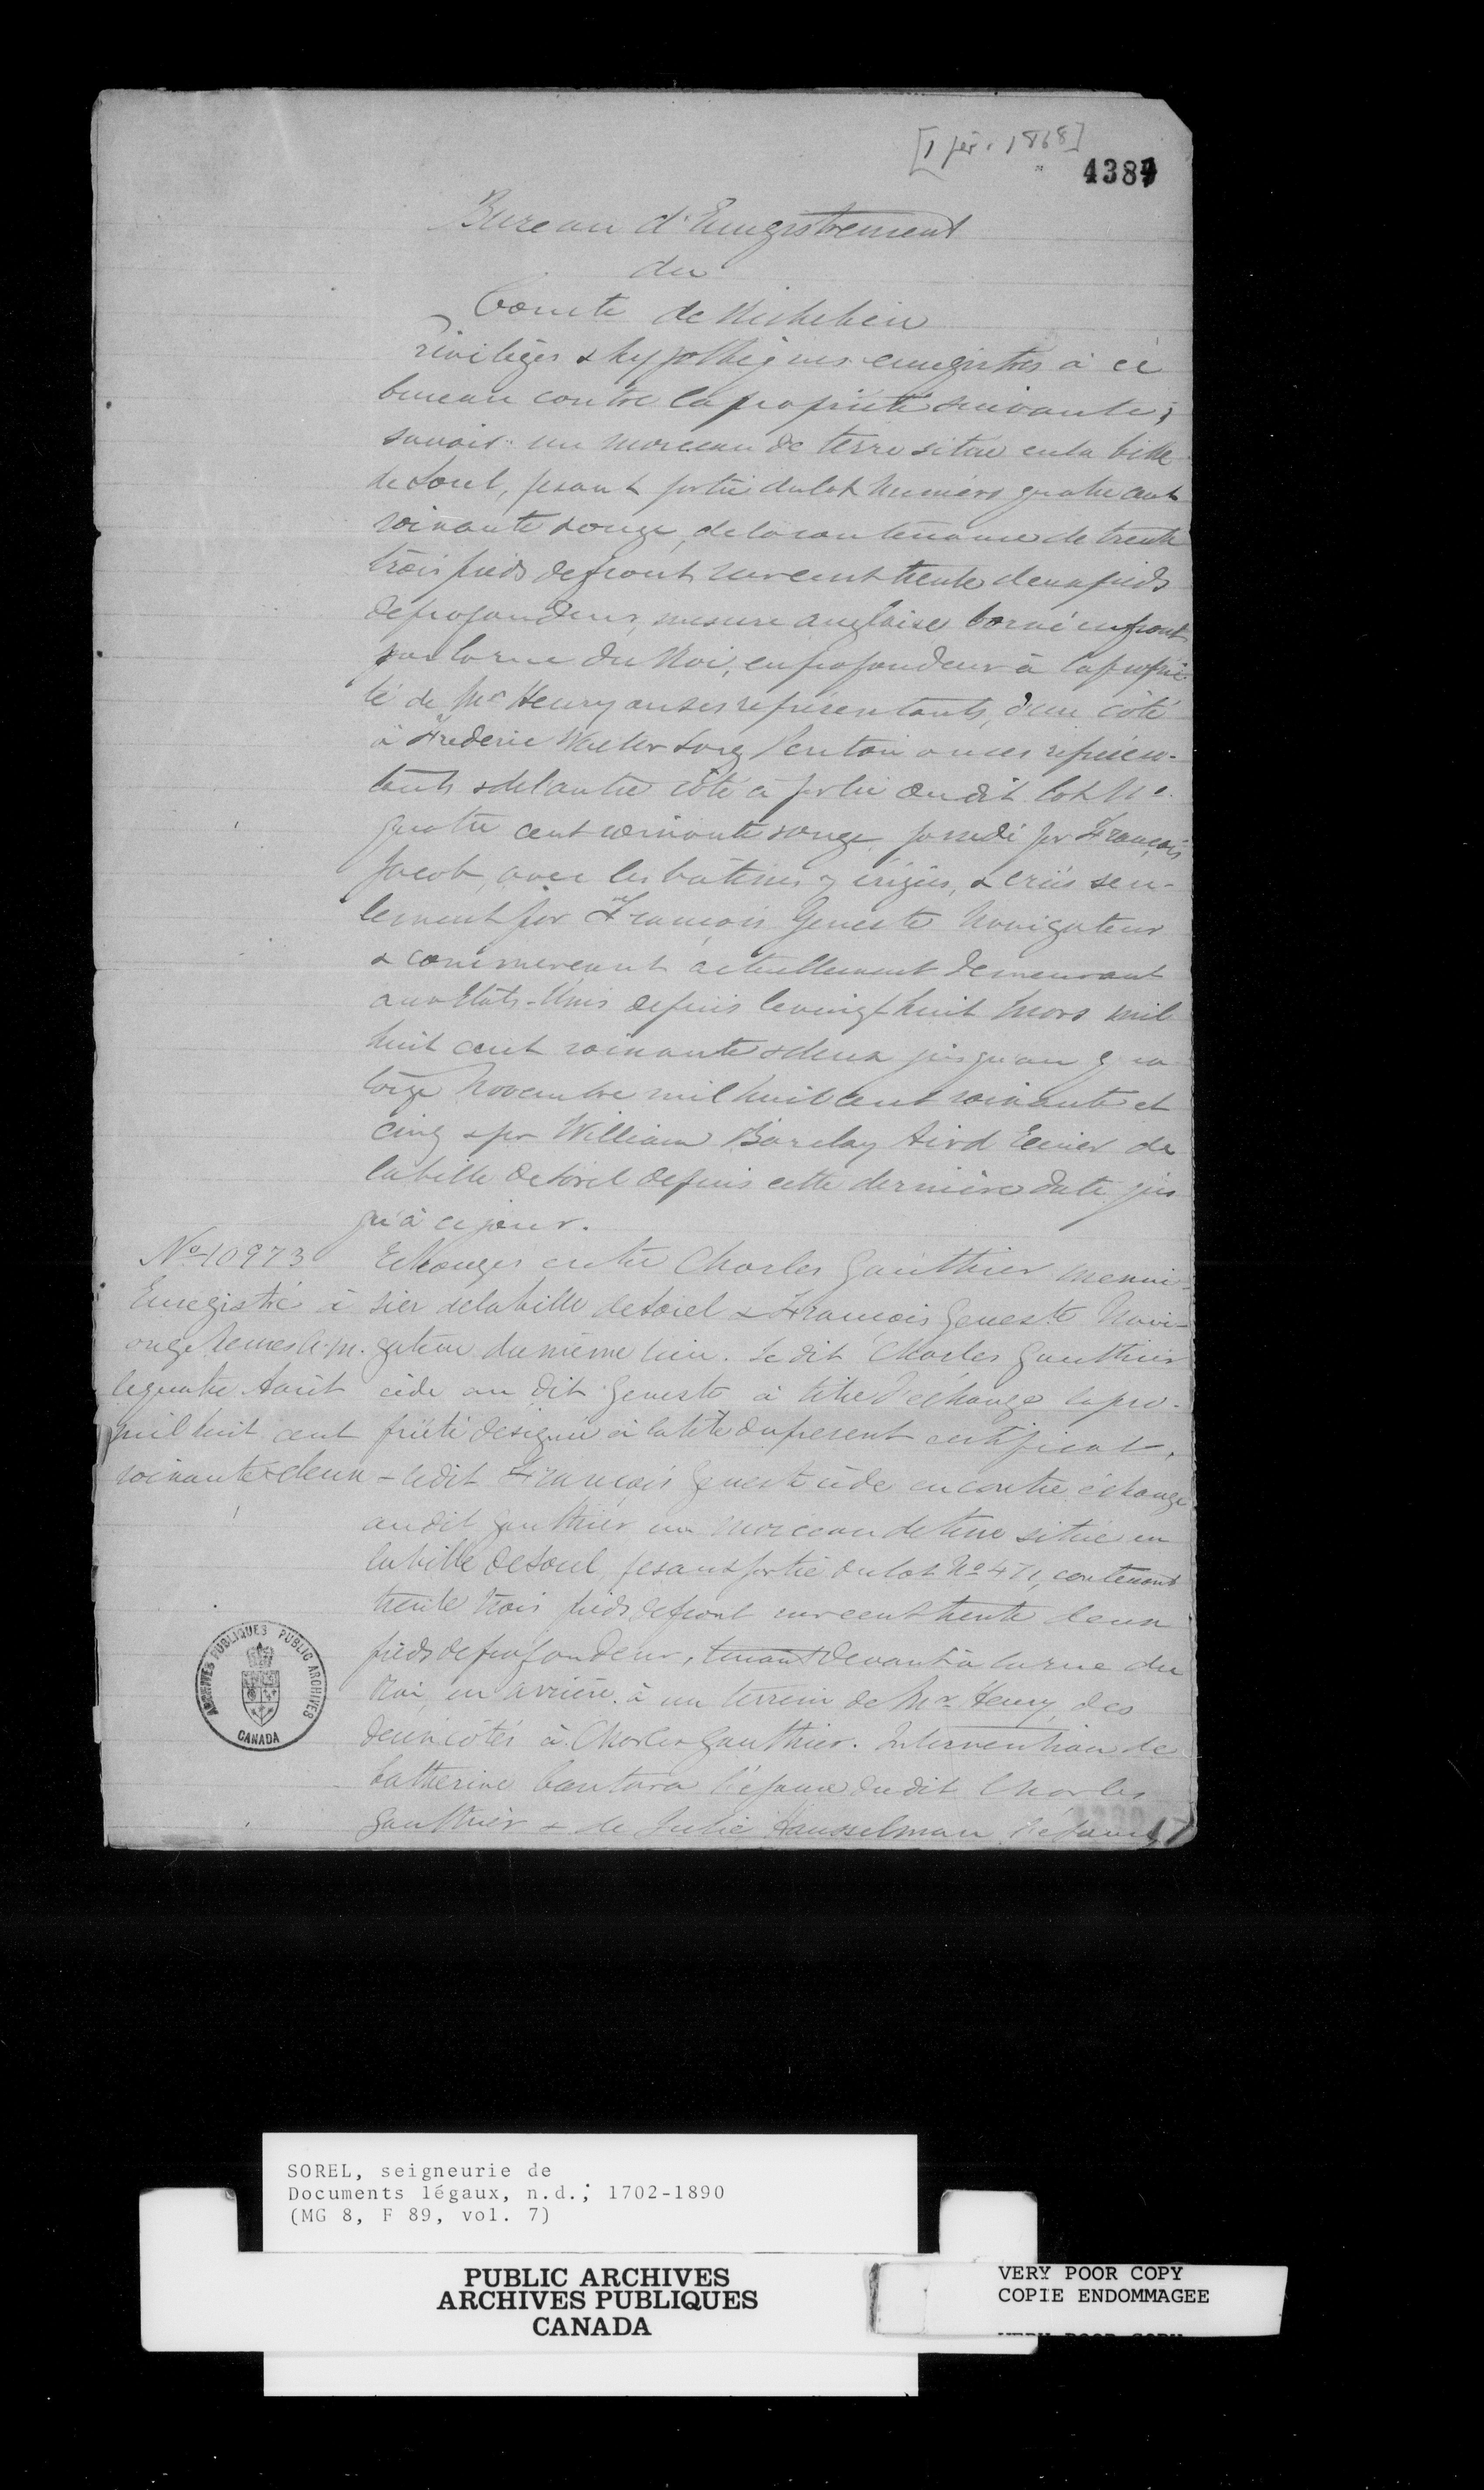 [1 fév. 1868]
4384
Bureau d'Enregistrement
du
Comté de Richelieu
Privilèges & hypothèques enregistrés à ce
bureau contre la propriété suivante;
savoir: un morceau de terre situé en la ville
de Sorel, fesant partie du lot numéro quatre cent
soixante & onze, de la contenance de trente
trois pieds de front sur cent trente deux pieds
de profondeur, mesure anglaise, borné en front
par la rue du Roi, en profondeur à la proprié-
té de Mr Henry ou ses représentants, d'un côté
à Frederic Walter Lorg Penton ou ses représen-
tants & de l'autre côté à partie du dit lot No
quatre cent soixante & onze possedé par François
Jacob, avec les bâtisses y érigées, & créés seu-
lement par François Geneste Navigateur
& commercant actuellement demeurant
aux Etats-Unis depuis le vingt huit Mars mil
huit cent soixante & deux jusqu'au qua
torze Novembre mil huit cent soixante et
cinq & par William Barclay Aird Ecuier de
la ville de Sorel depuis cette dernière date jus
qu'à ce jour.
No 10973
Enregistré à
onze heures A.M.
le quatre Août
mil huit cent
soixante & deux
Echanges entre Charles Gauthier menui-
sier de la ville de Sorel & François Geneste Navi-
gateur du même lieu. Le dit Charles Gauthier
cède au dit Geneste à titre d'échange la pro-
priété designée à la tête du present certificat,
- ledit François Geneste cède en contre échange
au dit Gauthier un morceau de terre situé en
la ville de Sorel, fesant partie du lot No 471, contenant
trente trois pieds de front sur cent trente deux
pieds de profondeur, tenant devant à la rue du
Roi en arrière à un terrain de Mr Henry, des
deux côtés à Charles Gauthier. Intervention de
Catherine Cantara l'épouse du dit Charles
Gauthier & de Julie Hausselman l'épouse
ARCHIVES PUBLIQUES PUBLIC ARCHIVES
CANADA
SOREL, seigneurie de
Documents légaux, n.d.; 1702-1890
(MG 8, F 89, vol. 7)
PUBLIC ARCHIVES
ARCHIVES PUBLIQUES
CANADA
VERY POOR COPY
COPIE ENDOMMAGEE
VERY POOR COPY